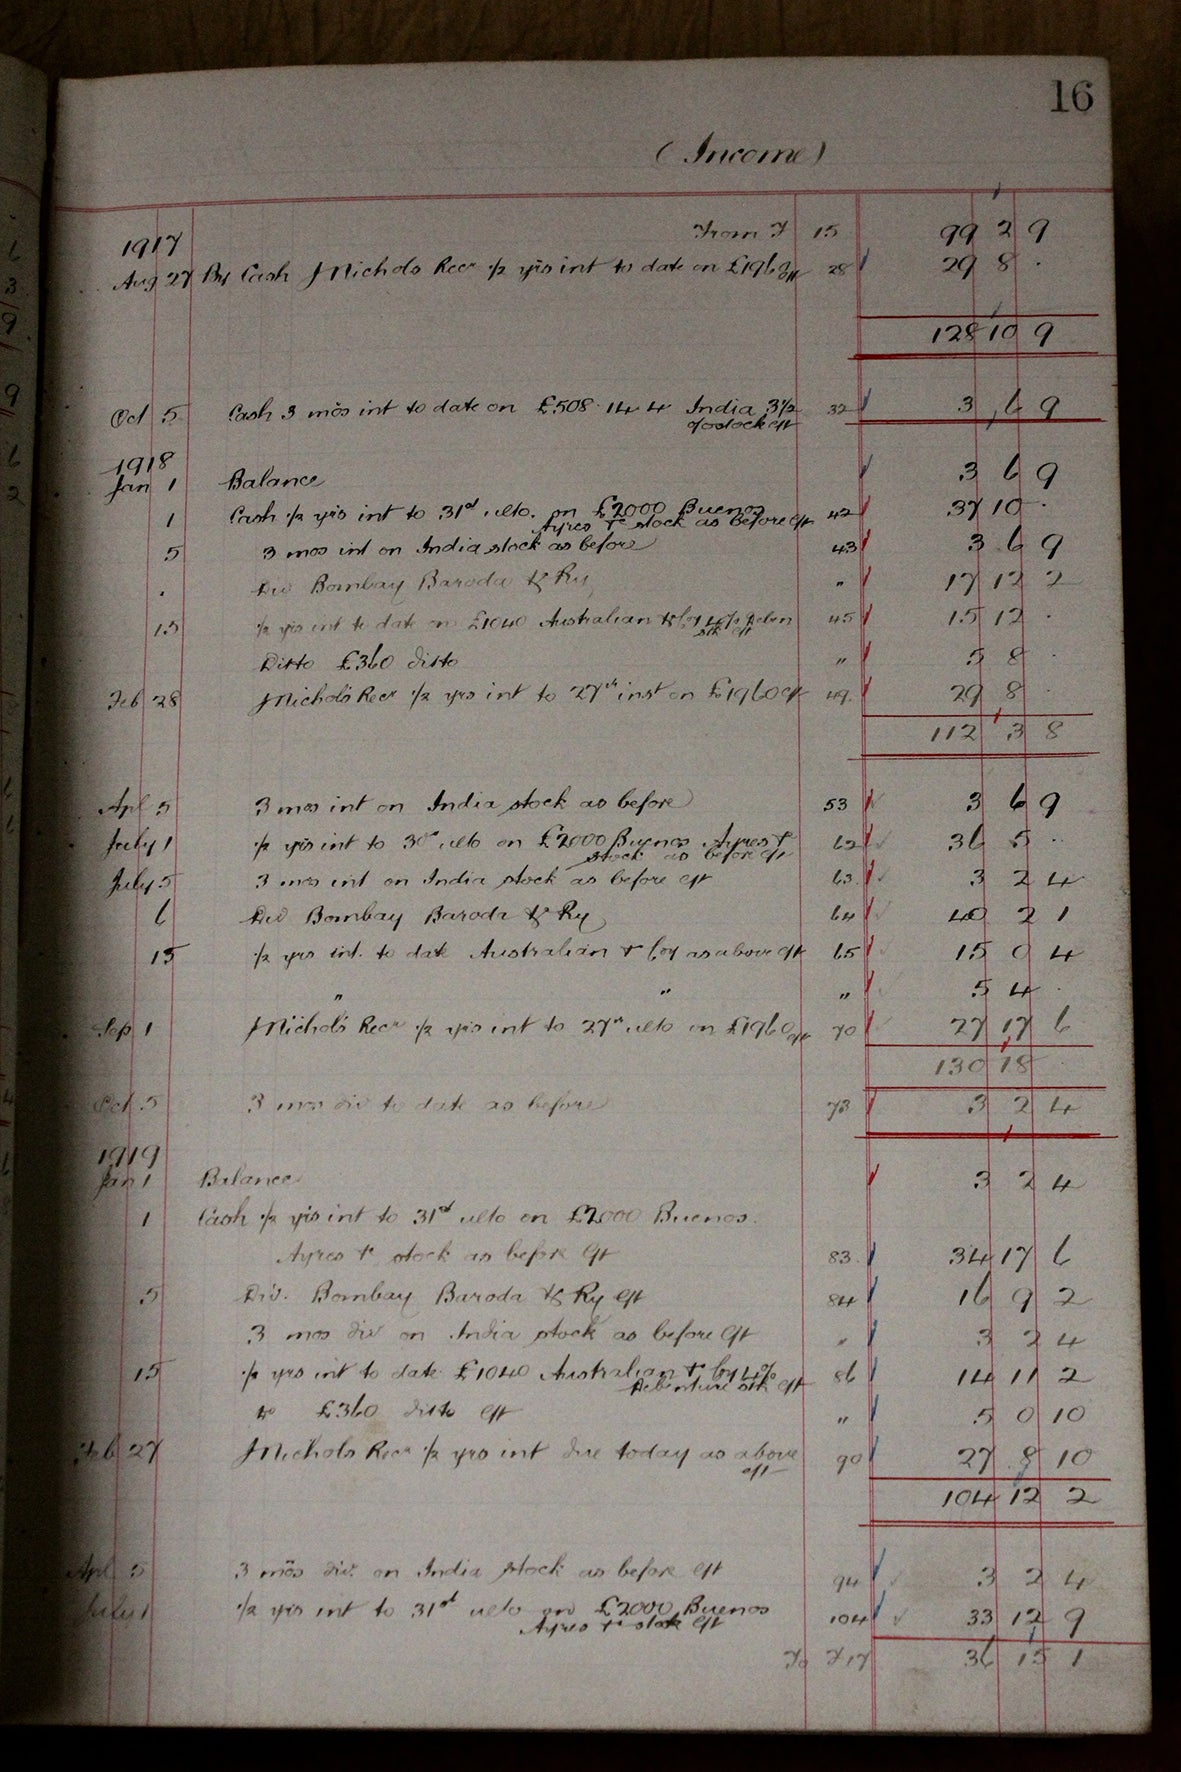 16
(Income)
1917 From F 15 99 2 9
Aug 27 By Cash J Nichols Recr ½ yrs int to date on £1960 eft 28 29 8 .
128 10 9
Oct 5 Cash 3 mos int to date on £508.14.4 India 3½ 32 3 6 9
% stock eft
1918
Jan 1 Balance 3 6 9
1 Cash ½ yrs int to 31st ulto. on £2000 Buenos 42 37 10 .
Ayres &c stock as before eft
5 3 mos int on India stock as before 43 3 6 9
. Div Bombay Baroda &c Ry " 17 12 2
15 ½ yrs int to date on £1040 Australian &c Coy 4% Deben 45 15 12 .
stk eft
Ditto £360 ditto " 5 8 .
Feb 28 J Nichols Recr ½ yrs int to 27th inst on £1960 eft 49 29 8 .
112 3 8
Apl 5 3 mos int on India stock as before 53 3 6 9
July 1 ½ yrs int to 30th ulto on £2000 Buenos Ayres &c 62 36 5 .
stock as before eft
July 5 3 mos int on India stock as before eft 63 3 2 4
6 Div Bombay Baroda &c Ry 64 40 2 1
15 ½ yrs int. to date Australian &c Coy as above eft 65 15 0 4
" " " 5 4 .
Sep 1 J Nichols Recr ½ yrs int to 27th ulto on £1960 eft 70 27 17 6
130 18
Oct 5 3 mos div to date as before 73 3 2 4
1919
Jan 1 Balance 3 2 4
1 Cash ½ yrs int to 31st ulto on £2000 Buenos.
Ayres &c stock as before eft 83 34 17 6
5 Div. Bombay Baroda &c Ry eft 84 16 9 2
3 mos div on India stock as before eft " 3 2 4
15 ½ yrs int to date £1040 Australian &c Coy 4% 86 14 11 2
Debenture stk eft
&c £360 ditto eft " 5 0 10
Feb 27 J Nichols Recr ½ yrs int due today as above 90 27 8 10
eft
104 12 2
Apl 5 3 mos div. on India stock as before eft 94 3 2 4
July 1 ½ yrs int to 31st ulto on £2000 Buenos 104 33 12 9
Ayres &c stock eft
To F 17 36 15 1